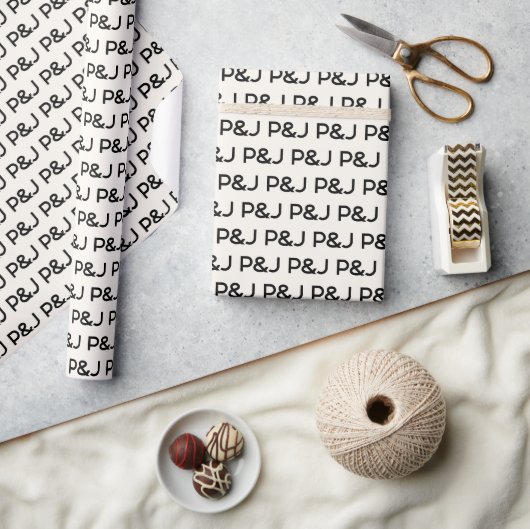 P&J P&J P&J
P&J P&J P&J
P&J P&J P&J
P&J P&J P&J
P&J P&J P&J
P&J P&J P&J
P&J P&J P&J
P&J P&J P&J
P&J P&J P&J